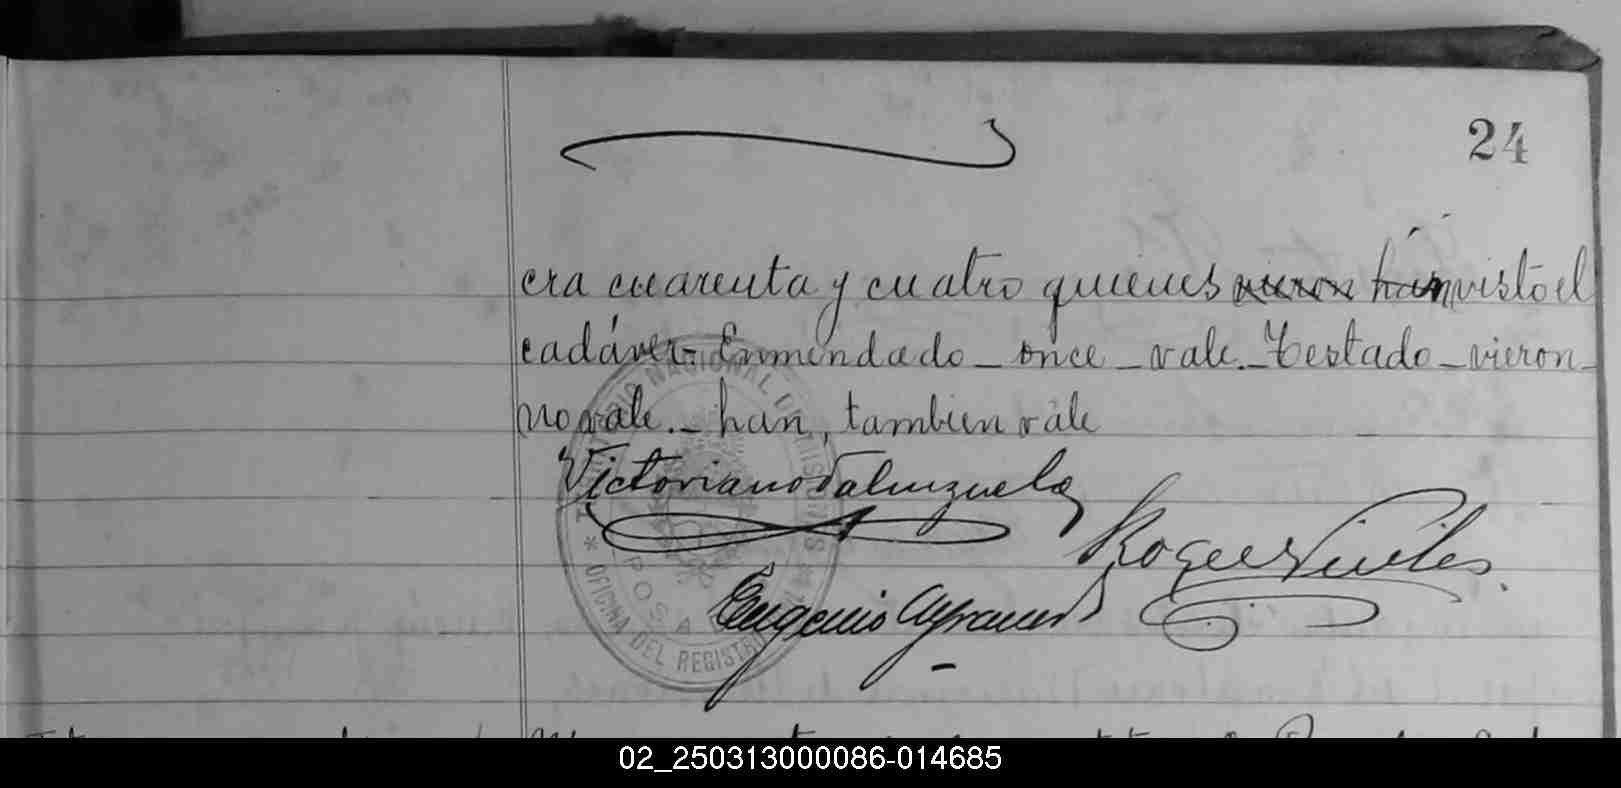 24
era cuarenta y cuatro quienes vieron han visto el
cadáver - Enmendado - once - vale. - Testado - vieron -
no vale. - han, tambien vale
Victoriano Valenzuela
Roger
Eugenio
TERRITORIO NACIONAL DE MISIONES
* OFICINA DEL REGISTRO
POSADAS
02_250313000086-014685